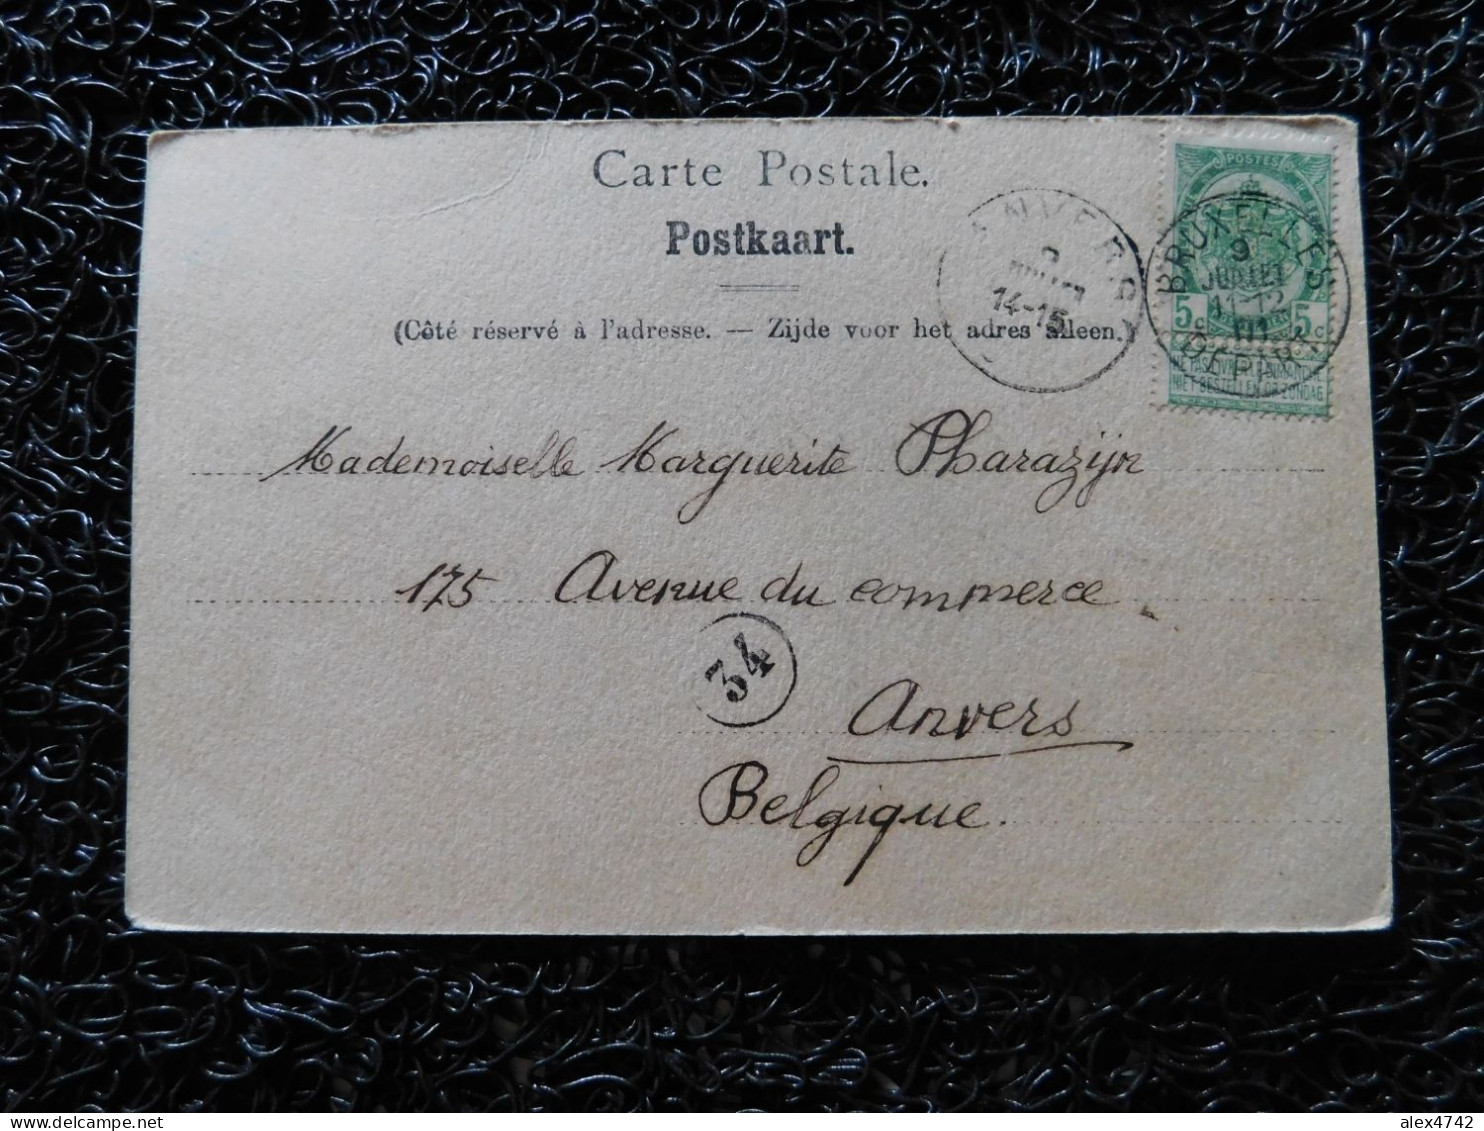 Carte Postale.
Postkaart.
(Côté réservé à l'adresse. — Zijde voor het adres alleen.)
ANVERS
JUILLET
14-15
POSTES
BRUXELLES
9
JUILLET
11-12
DEPART
5c 5c
NE PAS LIVRER LE DIMANCHE
NIET BESTELLEN OP ZONDAG
Mademoiselle Marguerite Pharazijn
175 Avenue du commerce
34
Anvers
Belgique.
alex4742